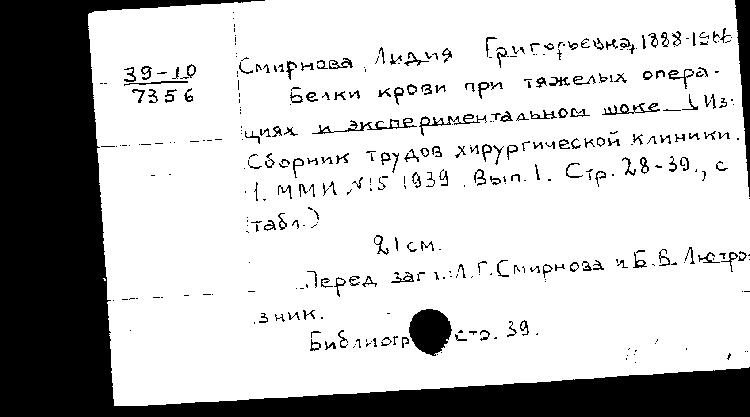 39-10
7356
Смирнова, Лидия Григорьевна, 1888-1966
Белки крови при тяжелых опера-
циях и экспериментальном шоке. (Из:
Сборник трудов хирургической клиники.
1. ММИ. №15 1939. Вып. 1. Стр. 28-39., с
табл.)
21 см.
Перед загл.: Л.Г. Смирнова и Б.В. Люстро-
зник.
Библиогр. стр. 39.